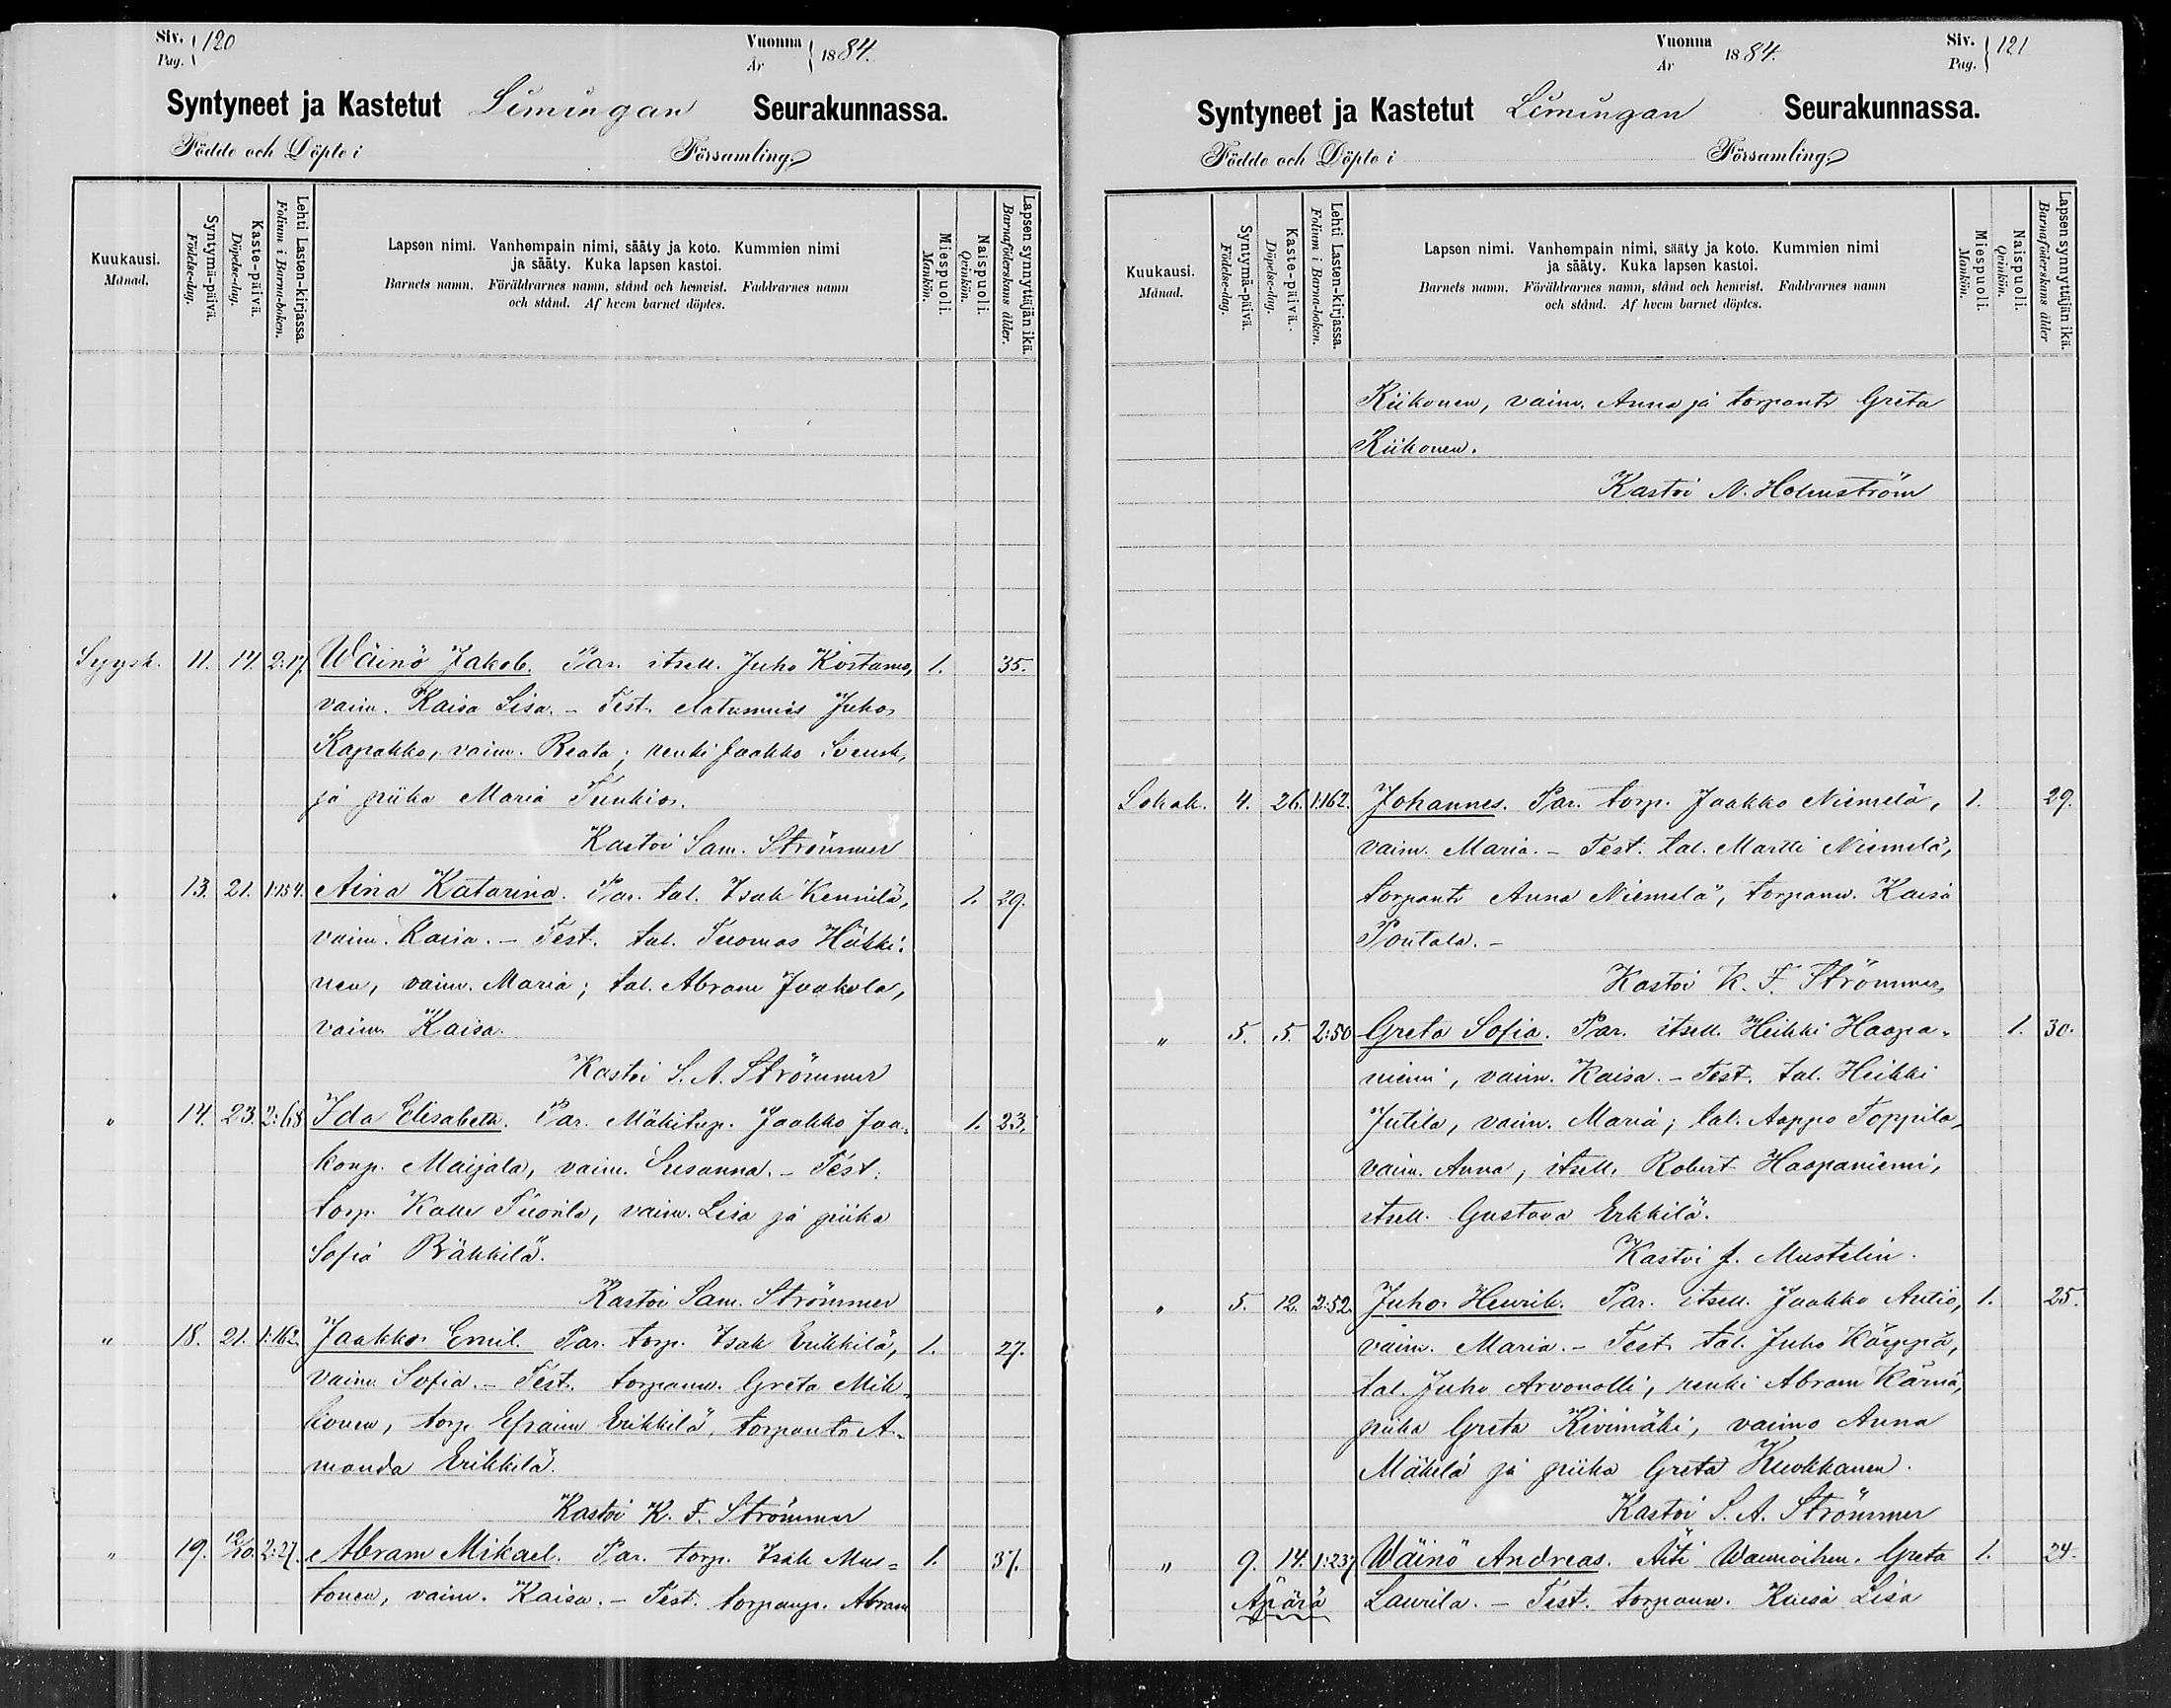 Siv. 120
Pag.
Vuonna 1884.
År
Syntyneet ja Kastetut Limingan Seurakunnassa.
Födde och Döpte i Församling.
Kuukausi.
Månad.
Syntymä-päivä.
Födelse-dag.
Kaste-päivä.
Döpelse-dag.
Lehti Lasten-kirjassa.
Folium i Barna-boken.
Lapsen nimi. Vanhempain nimi, sääty ja koto. Kummien nimi
ja sääty. Kuka lapsen kastoi.
Barnets namn. Föräldrarnes namn, stånd och hemvist. Faddrarnes namn
och stånd. Af hvem barnet döptes.
Miespuoli.
Mankön.
Naispuoli.
Qvinkön.
Lapsen synnyttäjän ikä.
Barnaföderskans ålder.
Syysk. 11. 14. 2:17. Wäinö Jakob. Par. itsell. Juho Kostamo, 1. 35.
vaim. Kaisa Lisa. - Test. Juho
Kapakko, vaim. Reata; renki Jaakko Svensk,
ja piika Maria Tunkio.
Kastoi Sam. Strömmer
" 13. 21. 1:154. Aina Katarina. Par. tal. Isak Kennilä, 1. 29.
vaim. Kaisa. - Test. tal. Tuomas Häkki-
nen, vaim. Maria; tal. Abram Jaakola,
vaim. Kaisa.
Kastoi S. A. Strömmer
" 14. 23. 2:68 Ida Elisabeth. Par. Mäkitup. Jaakko Jaa- 1. 23.
konp. Maijala, vaim. Susanna. - Test.
torp. Kalle Tuorila, vaim. Lisa ja piika
Sofia Bäkkilä.
Kastoi Sam. Strömmer
" 18. 21. 1:162. Jaakko Emil. Par. torp. Isak Erkkilä, 1. 27.
vaim. Sofia. - Test. torpanv. Greta Mik-
konen, torp. Efraim Erikkilä, torpantr A-
manda Erikkilä.
Kastoi K. F. Strömmer
" 19. 12/10. 2:27. Abram Mikael. Par. torp. Isak Mus- 1. 37.
tonen, vaim. Kaisa. - Test. torpanp. Abram
Vuonna 1884.
År
Siv. 121
Pag.
Syntyneet ja Kastetut Limingan Seurakunnassa.
Födde och Döpte i Församling.
Kuukausi.
Månad.
Syntymä-päivä.
Födelse-dag.
Kaste-päivä.
Döpelse-dag.
Lehti Lasten-kirjassa.
Folium i Barna-boken.
Lapsen nimi. Vanhempain nimi, sääty ja koto. Kummien nimi
ja sääty. Kuka lapsen kastoi.
Barnets namn. Föräldrarnes namn, stånd och hemvist. Faddrarnes namn
och stånd. Af hvem barnet döptes.
Miespuoli.
Mankön.
Naispuoli.
Qvinkön.
Lapsen synnyttäjän ikä.
Barnaföderskans ålder
Riikonen, vaim. Anna ja torpantr Greta
Riikonen.
Kastoi N. Holmström
Lokak. 4. 26. 1:162. Johannes. Par. torp. Jaakko Niemelä, 1. 29.
vaim. Maria. - Test. tal. Martti Niemelä,
torpantr Anna Niemelä, torpanv. Kaisa
Pontala. -
Kastoi K. F. Strömmer
" 5. 5. 2:50 Greta Sofia. Par. itsell. Heikki Haapa- 1. 30.
niemi, vaim. Kaisa. - Test. tal. Heikki
Jutila, vaim. Maria; tal. Aappo Toppila,
vaim. Anna; itsell. Robert Haapaniemi,
itsell. Gustava Erkkilä.
Kastoi J. Mustelin.
" 5. 12. 2:52. Juho Henrik. Par. itsell. Jaakko Antio, 1. 25.
vaim. Maria. - Test. tal. Juho Käyppä,
tal. Juho Arvonolli, renki Abram Kärnä,
piika Greta Kivimäki, vaimo Anna
Mäkelä ja piika Greta Kuokkanen.
Kastoi S. A. Strömmer
" 9. 14. 1:237 Wäinö Andreas. Äiti Greta 1. 24.
Äpärä Laurila. - Test. torpanv. Kaisa Lisa